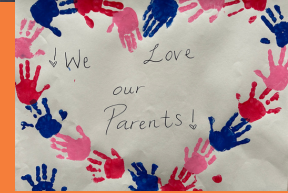 ¡We Love
our
Parents!